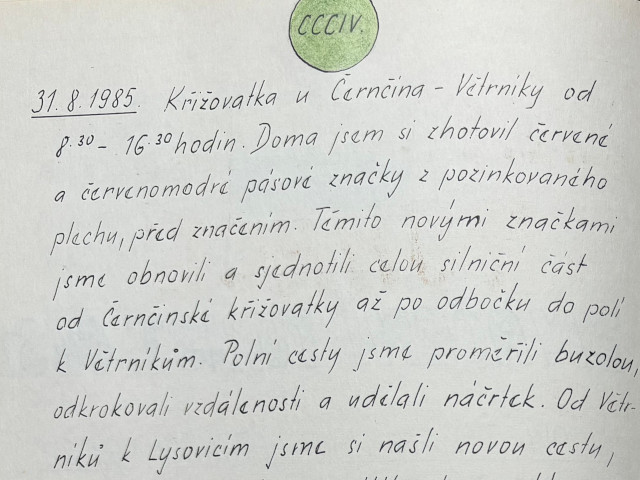 CCCIV.
31.8.1985. Křižovatka u Černčína - Větrníky od
8.30 - 16.30 hodin. Doma jsem si zhotovil červené
a červenomodré pásové značky z pozinkovaného
plechu, před značením. Těmito novými značkami
jsme obnovili a sjednotili celou silniční část
od Černčínské křižovatky až po odbočku do polí
k Větrníkům. Polní cesty jsme proměřili buzolou,
odkrokovali vzdálenosti a udělali náčrtek. Od Větr-
níků k Lysovicím jsme si našli novou cestu,